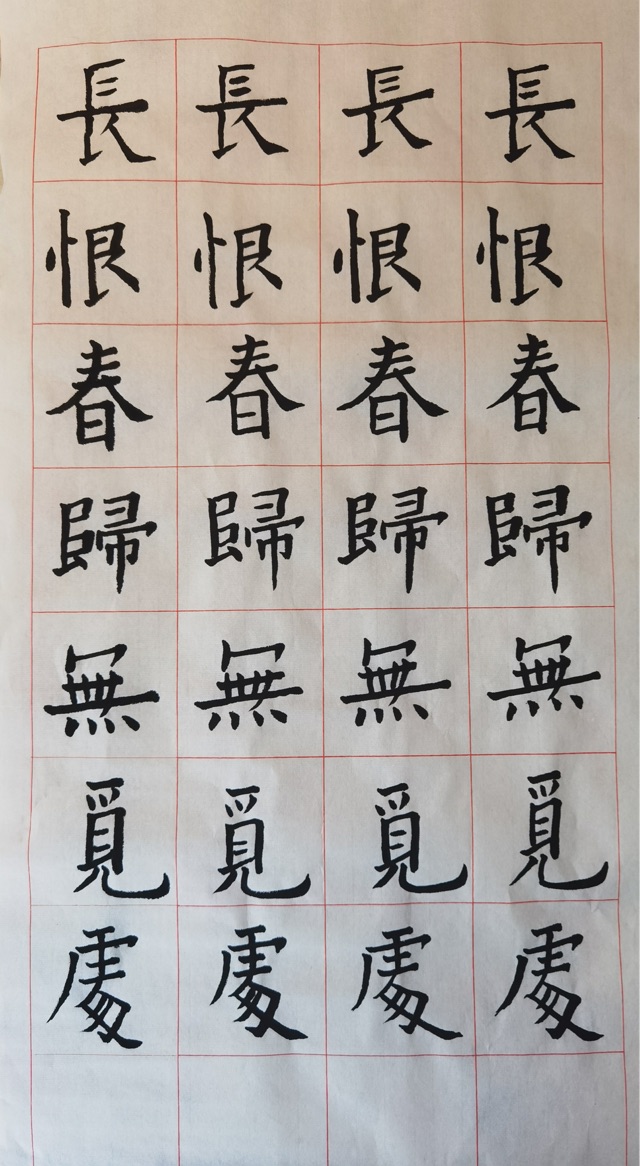 長恨春歸無覓處
長恨春歸無覓處
長恨春歸無覓處
長恨春歸無覓處